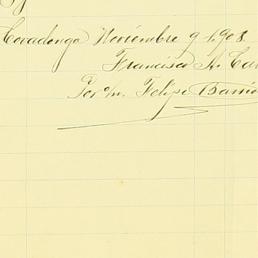 Covadonga Noviembre 9-1908.
Francisca
Por m. Felipe